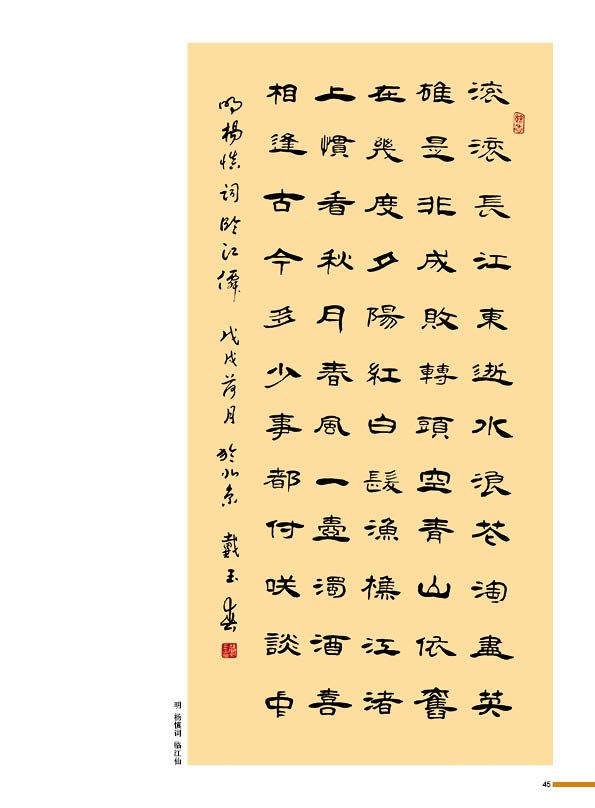 滚滚長江東逝水浪花淘盡英
雄是非成敗轉頭空青山依舊
在幾度夕陽紅白髮漁樵江渚
上慣看秋月春風一壺濁酒喜
相逢古今多少事都付咲談中
明楊慎詞臨江僊 戊戌荷月於北京 戴玉春
明 杨慎词 临江仙
45